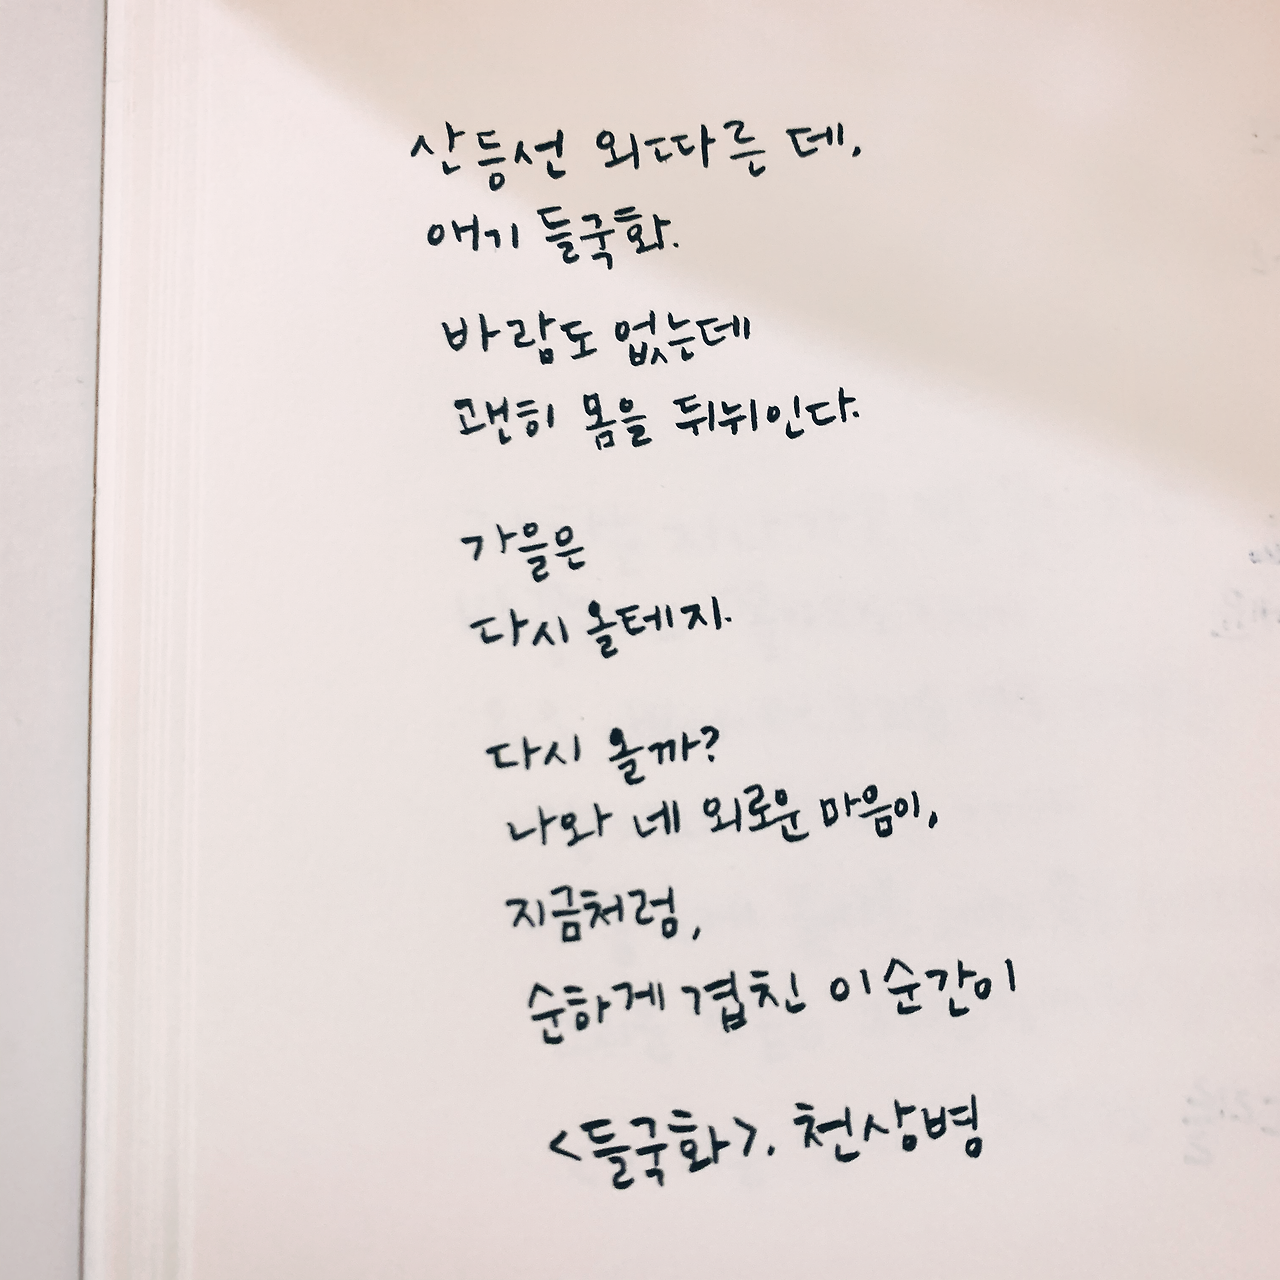 산등선 외따른 데,
애기 들국화.
바람도 없는데
괜히 몸을 뒤뉘인다.
가을은
다시 올테지.
다시 올까?
나와 네 외로운 마음이,
지금처럼,
순하게 겹친 이 순간이
<들국화>. 천상병